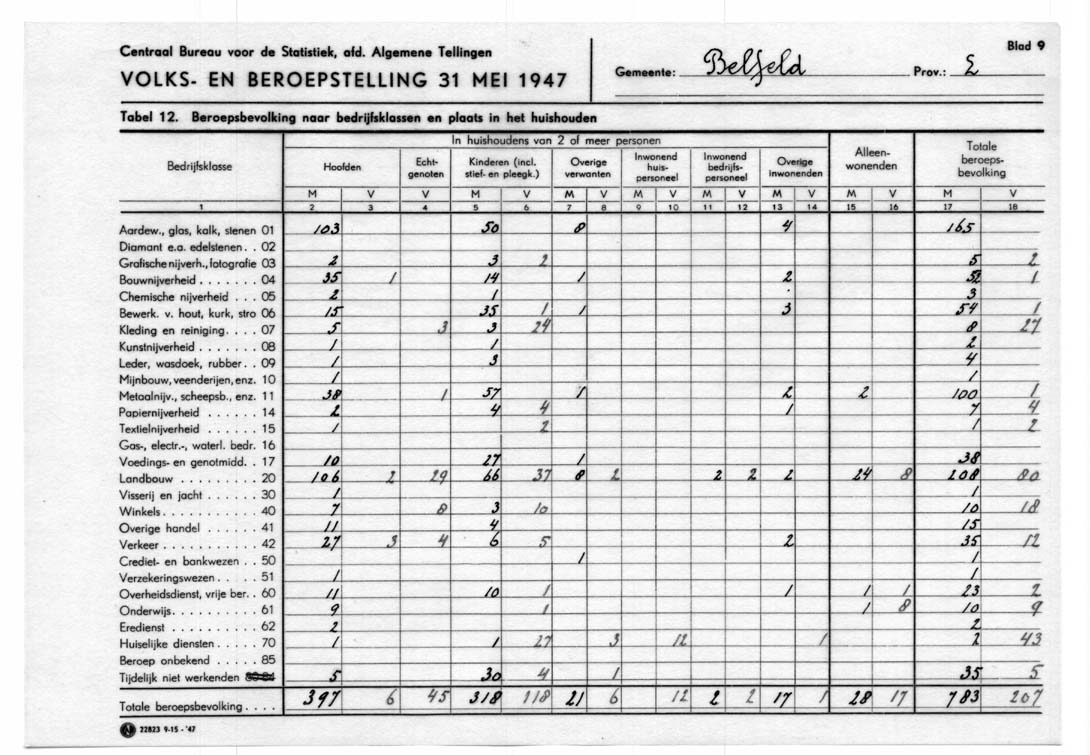 Centraal Bureau voor de Statistiek, afd. Algemene Tellingen
VOLKS- EN BEROEPSTELLING 31 MEI 1947
Gemeente: Belfeld Prov.: L
Blad 9
Tabel 12. Beroepsbevolking naar bedrijfsklassen en plaats in het huishouden
In huishoudens van 2 of meer personen
Bedrijfsklasse Hoofden Echtgenoten Kinderen (incl. stief- en pleegk.) Overige verwanten Inwonend huispersoneel Inwonend bedrijfspersoneel Overige inwonenden Alleenwonenden Totale beroepsbevolking
M V V M V M V M V M V M V M V M V
1 2 3 4 5 6 7 8 9 10 11 12 13 14 15 16 17 18
Aardew., glas, kalk, stenen 01 103 50 8 4 165
Diamant e.a. edelstenen. . 02
Grafische nijverh., fotografie 03 2 3 2 5 2
Bouwnijverheid . . . . . . . 04 35 1 14 1 2 52 1
Chemische nijverheid . . . 05 2 1 3
Bewerk. v. hout, kurk, stro 06 15 35 1 1 3 54 1
Kleding en reiniging. . . . 07 5 3 3 24 8 27
Kunstnijverheid . . . . . . . 08 1 1 2
Leder, wasdoek, rubber. . 09 1 3 4
Mijnbouw, veenderijen, enz. 10 1 1
Metaalnijv., scheepsb., enz. 11 38 1 57 1 2 2 100 1
Papiernijverheid . . . . . . 14 2 4 4 1 7 4
Textielnijverheid . . . . . . 15 1 2 1 2
Gas-, electr.-, waterl. bedr. 16
Voedings- en genotmidd. . 17 10 27 1 38
Landbouw . . . . . . . . . 20 106 2 29 66 37 8 2 2 2 2 24 8 208 80
Visserij en jacht . . . . . . 30 1 1
Winkels . . . . . . . . . . . 40 7 8 3 10 10 18
Overige handel . . . . . . 41 11 4 15
Verkeer . . . . . . . . . . . 42 27 3 4 6 5 2 35 12
Crediet- en bankwezen . . 50 1 1
Verzekeringswezen . . . . . 51 1 1
Overheidsdienst, vrije ber. . 60 11 10 1 1 1 1 23 2
Onderwijs. . . . . . . . . . 61 9 1 1 8 10 9
Eredienst . . . . . . . . . . 62 2 2
Huiselijke diensten . . . . . 70 1 1 27 3 12 1 2 43
Beroep onbekend . . . . . 85
Tijdelijk niet werkenden 5 30 4 1 35 5
Totale beroepsbevolking . . . . 397 6 45 318 118 21 6 12 2 2 17 1 28 17 783 207
22823 9-15 - '47